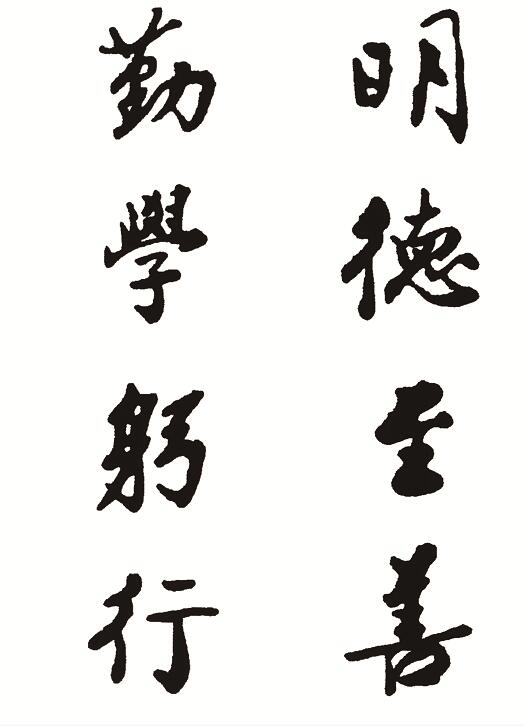 明德至善
勤學躬行